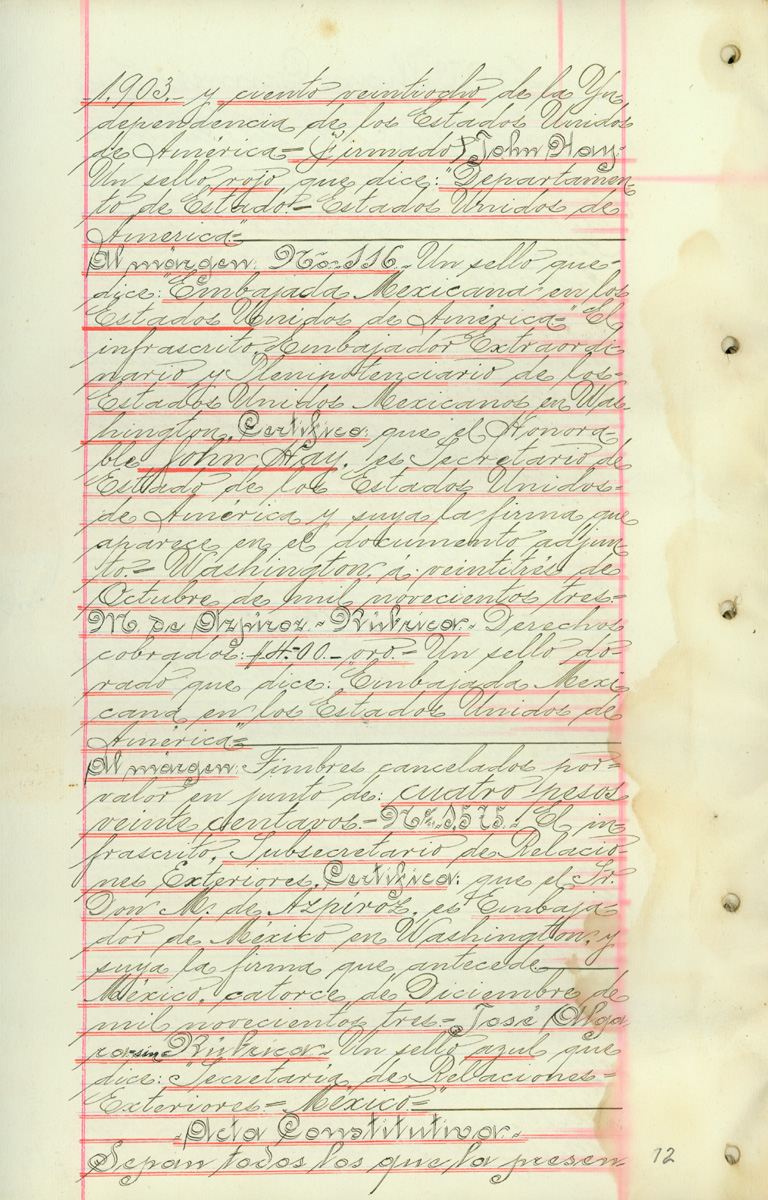 1.903.- y ciento veintiocho de la Yn
dependencia de los Estados Unidos
de América=(firmado) John Hay-
Un sello rojo que dice: "Departamen
to de Estado.=Estados Unidos de
América"=
Al márgen: No-116.-Un sello que-
dice: "Embajada Mexicana en los
Estados Unidos de América=" El
infrascrito Embajador Extraordi
nario y Plenipotenciario de los-
Estados Unidos Mexicanos en Was
hington. Certifica: que el Honora
ble John Hay, es Secretario de
Estado de los Estados Unidos=
de América y suya la firma que
aparece en el documento adjun
to.=Washington, á veintitrés de
Octubre de mil novecientos tres=
M. de Azpíroz.-Rúbrica.-Derechos
cobrados: $4.00.-oro=Un sello do
rado que dice: "Embajada Mexi
cana en los Estados Unidos de
América"=
Al márgen: Timbres cancelados por-
valor en junto de: cuatro pesos
veinte centavos.=No-1.575.-"El in
frascrito, Subsecretario de Relacio-
nes Exteriores, Certifica: que el Sr.
Don M. de Azpíroz, es Embaja-
dor de México en Washington, y
suya la firma que antecede
México, catorce de Diciembre de
mil novecientos tres=José Alga
ra-sin-Rúbrica=Un sello azul que
dice: "Secretaría de Relaciones=
Exteriores=México="
-Acta Constitutiva.-
Sepan todos los que la presen-
12